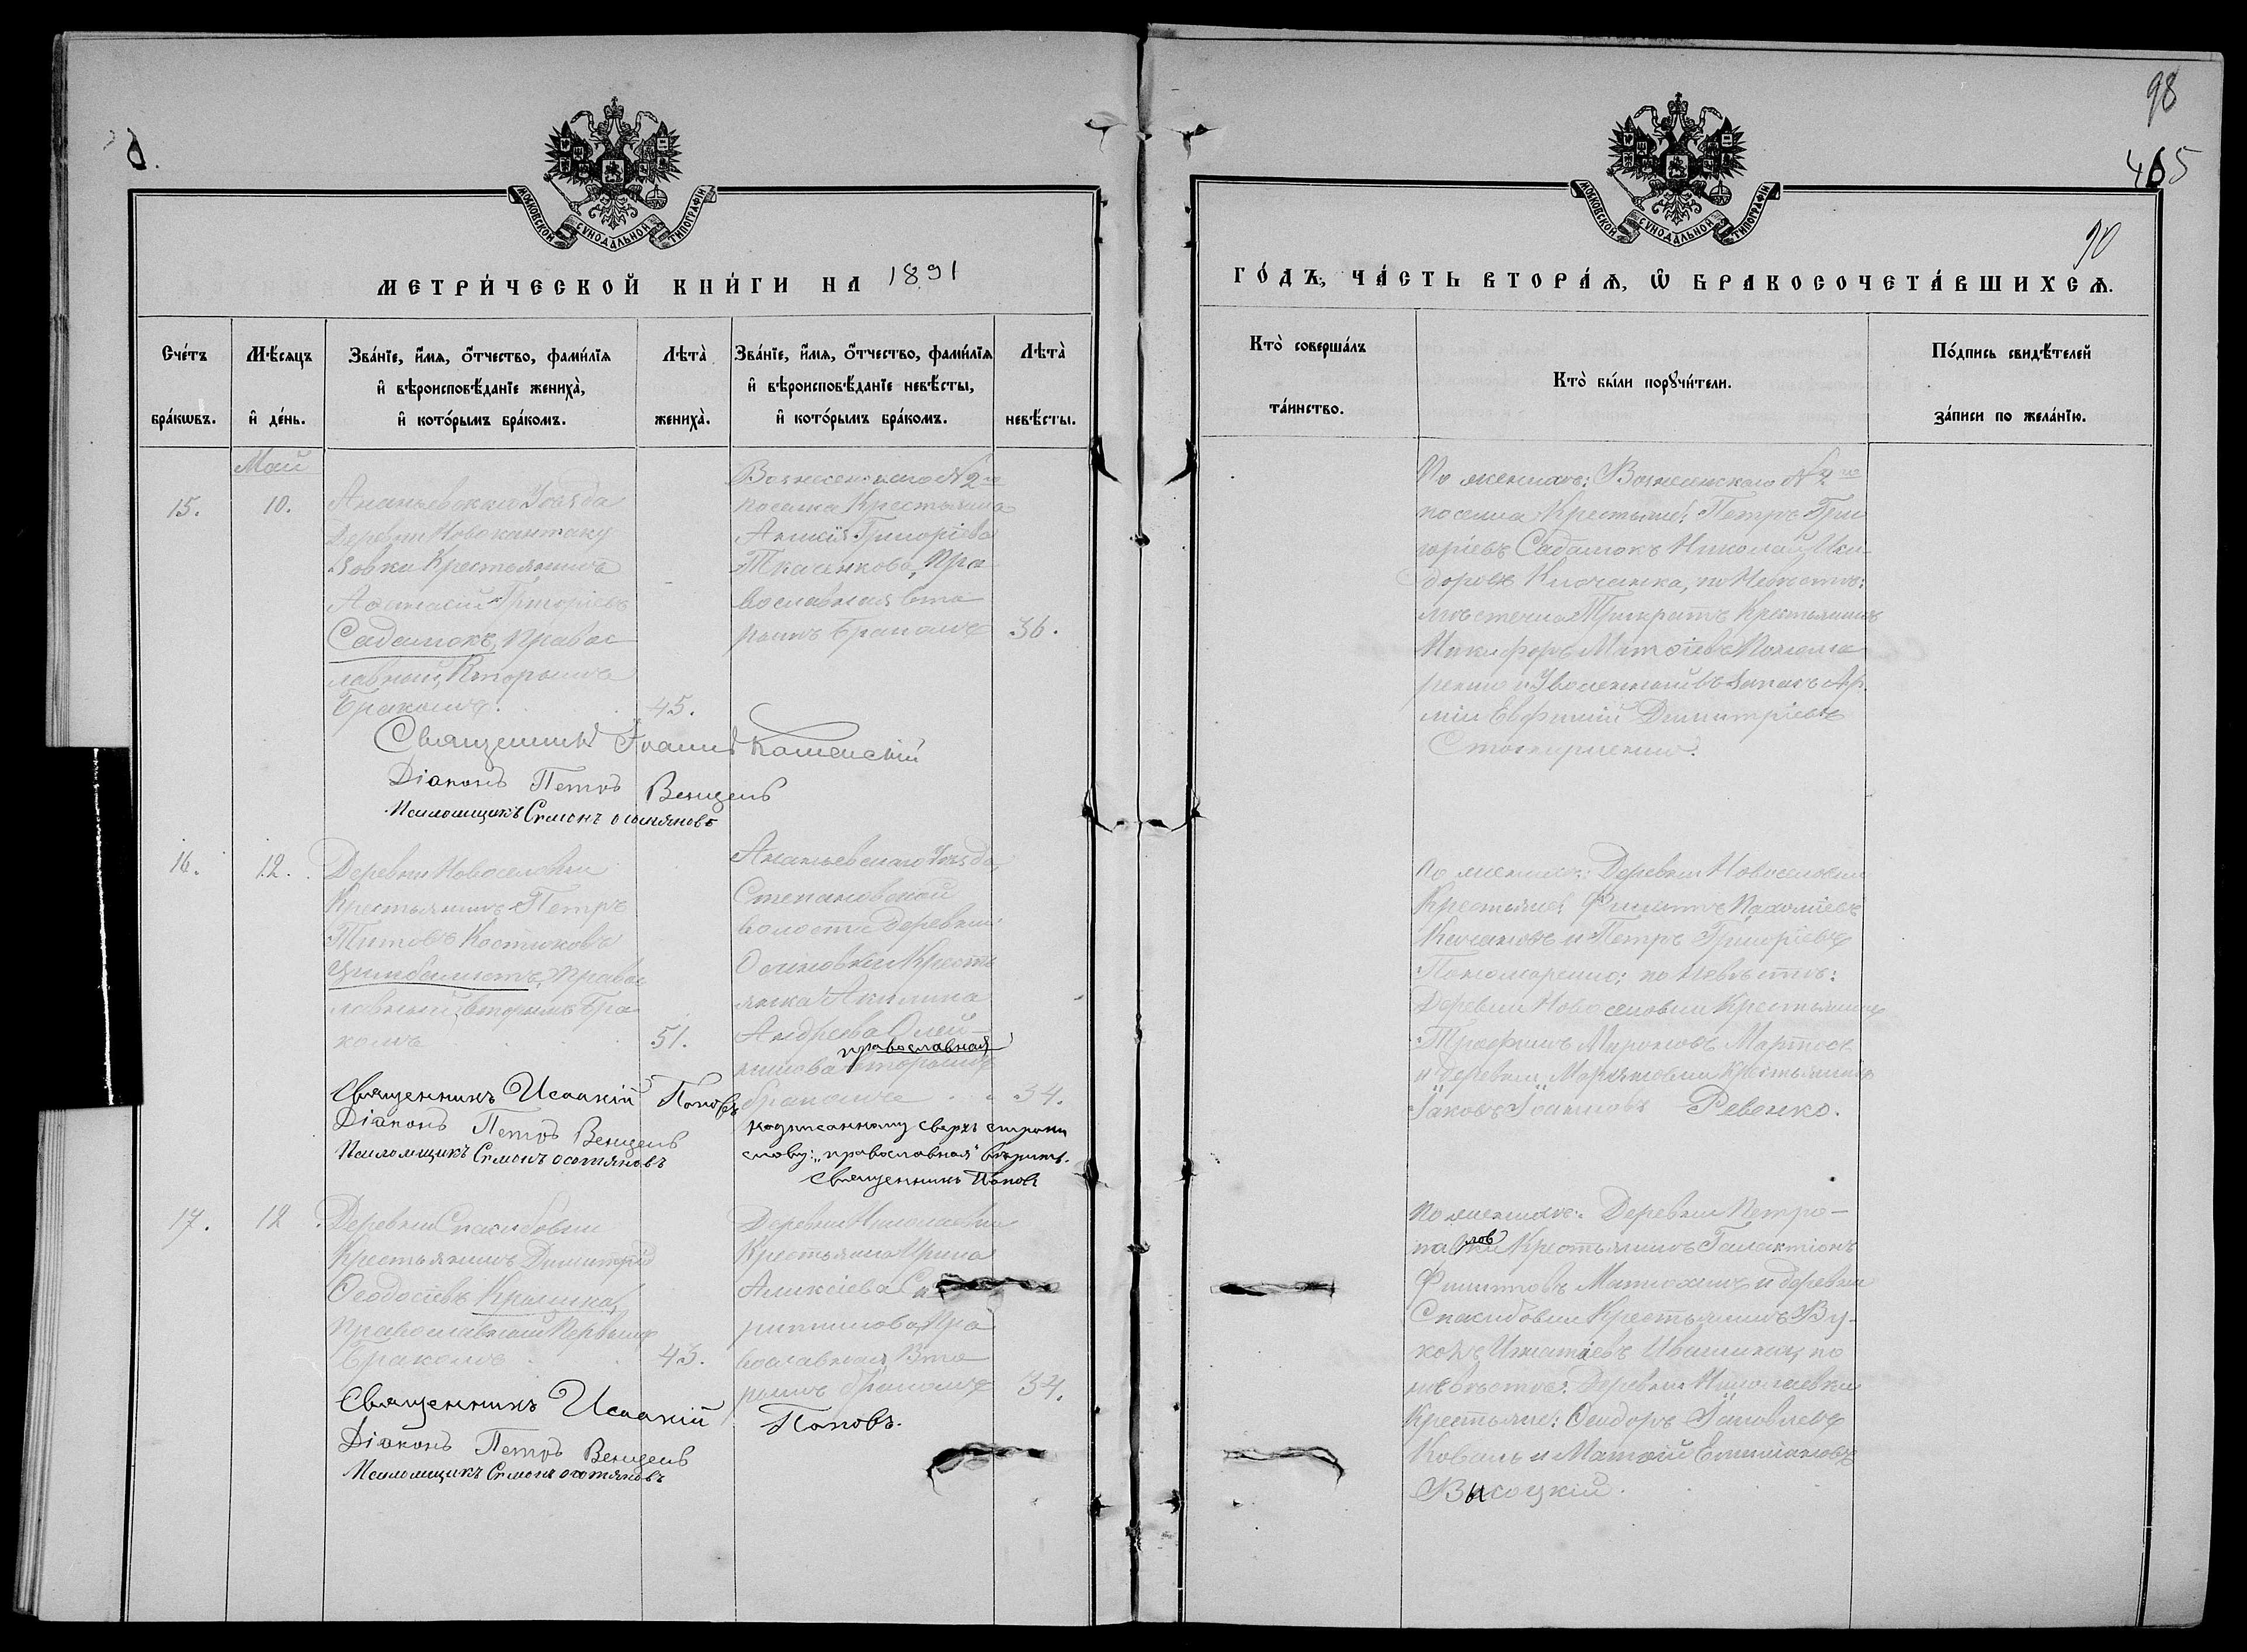 98
465
90
МОСКОВСКОЙ СѴНОДАЛЬНОЙ ТИПОГРАФІИ
МЕТРИ́ЧЕСКОЙ КНИ́ГИ НА 1891
Сче́тъ бра́кѡвъ.
Мѣ́сяцъ и҆ де́нь.
Зва́нїе, и҆́мя, ѻ҆́тчество, фами́лїя
и҆ вѣроисповѣ́данїе жениха̀,
и҆ кото́рымъ бра́комъ.
Лѣта̀ жениха̀.
Зва́нїе, и҆́мя, ѻ҆́тчество, фами́лїя
и҆ вѣроисповѣ́данїе невѣ́сты,
и҆ кото́рымъ бра́комъ.
Лѣта̀ невѣ́сты.
Май
15.
10.
Ананьевскаго Уѣзда
Деревни Новокантаку
зовки Крестьянинъ
Аѳанасій Григоріевъ
Садамокъ, Правос
лавный, Вторымъ
Бракомъ.
45.
Вознесенскаго №2го
поселка Крестьянка
Григоріева
Пра
вославная Вто
рымъ Бракомъ
36.
Священникъ Іоаннъ Каменскій
Діаконъ Петръ Венцель
Псаломщикъ Симонъ
16.
12.
Деревни Новоселовки
Крестьянинъ Петръ
Титовъ Костюковъ
Цимбалистъ, Правос
лавный, вторымъ Бра
комъ
51.
Ананьевскаго Уѣзда,
Степановской
волости Деревни
Осиновки Кресть
янка Акилина
Андреева Олей-
православная
никова вторымъ
бракомъ
34.
Священникъ Исаакій Поповъ
Діаконъ Петръ Венцель
Псаломщикъ Симонъ
Надписанному сверхъ строки
слову: „православная" вѣрить.
Священникъ Поповъ
17.
12
Деревни Спасибовки
Крестьянинъ Димитрій
Ѳеодосіевъ
Православный Первымъ
Бракомъ
43.
Деревни Николаевки
Крестьянка Ирина
Алексіева
Пра
вославная Вто
рымъ бракомъ
34.
Священникъ Исаакій Поповъ.
Діаконъ Петръ Венцель
Псаломщикъ Симонъ
МОСКОВСКОЙ СѴНОДАЛЬНОЙ ТИПОГРАФІИ
ГО́ДЪ, ЧА́СТЬ ВТОРА́Ѧ, Ѿ БРАКОСОЧЕТА́ВШИХСѦ.
Кто̀ соверша́лъ та́инство.
Кто̀ бы́ли порꙋчи́тели.
По́дпись свидѣ́телей
за́писи по жела́нїю.
По женихѣ: Вознесенскаго №2го
поселка Крестьяне: Петръ Гри
горіевъ Садамокъ Николай Иси-
доровъ по Невѣстѣ:
мѣстечка Трикратъ Крестьянинъ
Никифоръ Матѳіевъ Понома
ренко и Уволенный въ Запасъ Ар
міи Евфимій Димитріевъ
По женихѣ: Деревни Новоселовки
Крестьяне: Филиппъ Пахоміевъ
и Петръ Григоріевъ
Пономаренко; по Невѣстѣ:
Деревни Новоселовки Крестьянинъ
Трофимъ Мироновъ Мартосъ
и деревни Мартыновки Крестьянинъ
Іаковъ Іоанновъ Ревенко.
По женихѣ: Деревни Петро-
павловки Крестьянинъ Галактіонъ
Филипповъ и деревни
Спасибовки Крестьянинъ Ву-
колъ Игнатіевъ по
невѣстѣ: Деревни Николаевки
Крестьяне: Ѳеодоръ Іаковлевъ
Коваль и Матѳій Емиліановъ
Высоцкій.